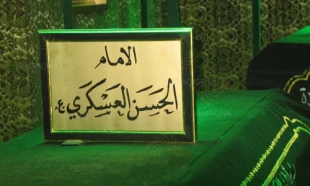 الامام
الحَسَن العَسكَري ع